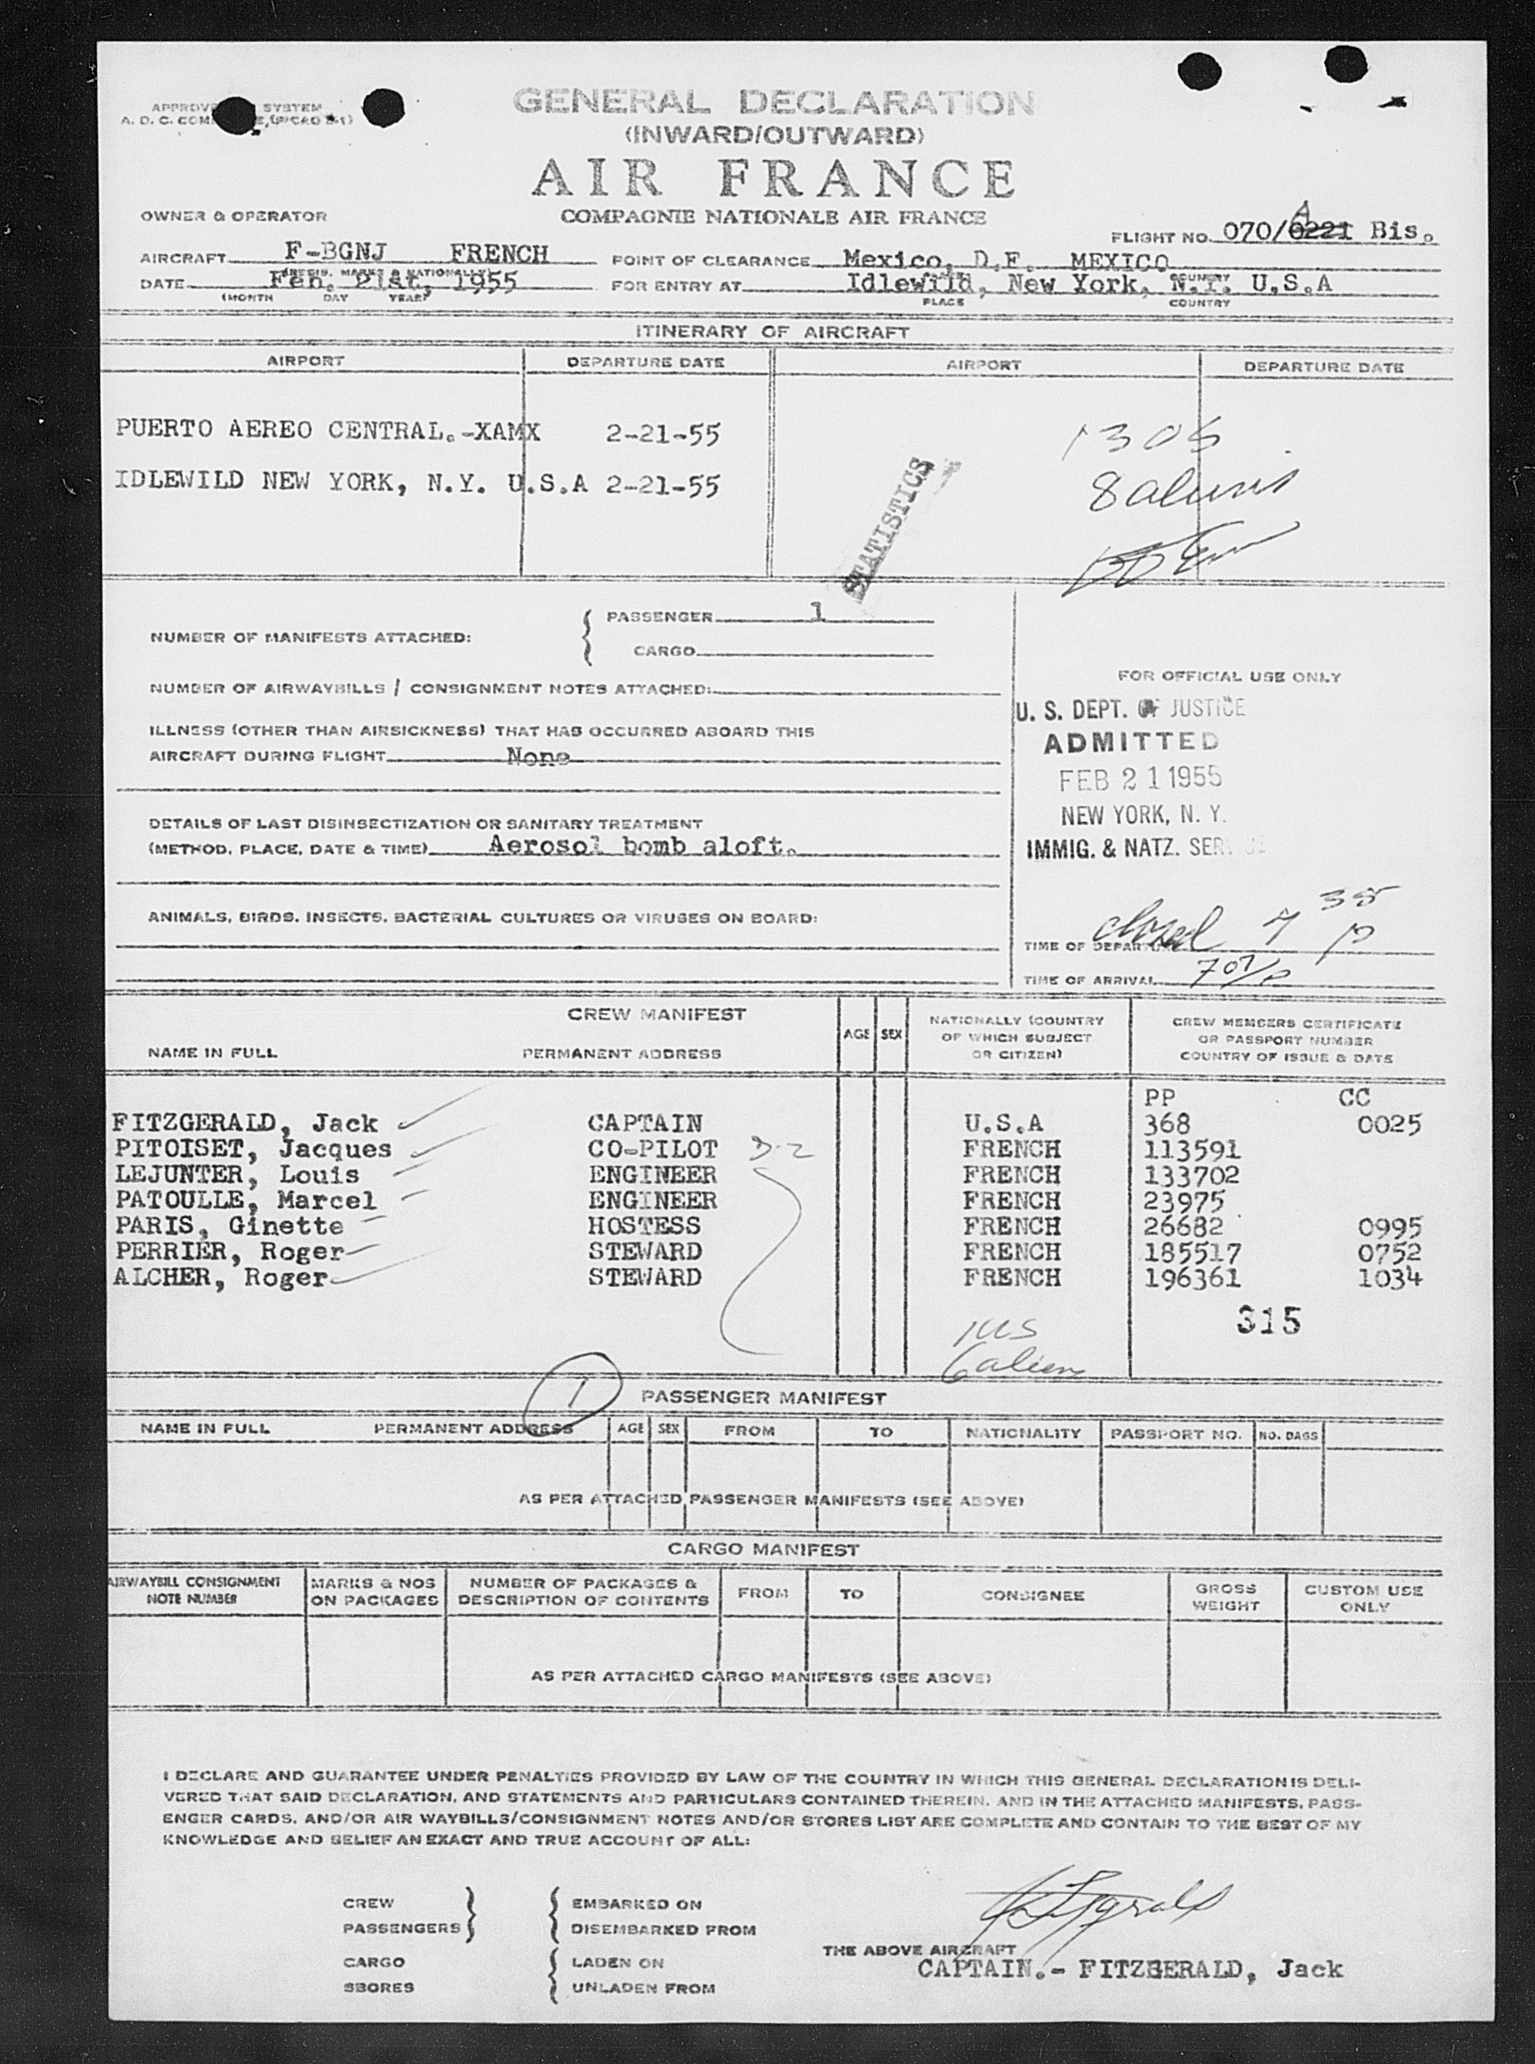 GENERAL DECLARATION
SYSTEM
A. D. C.
(INWARD/OUTWARD)
AIR FRANCE
COMPAGNIE NATIONALE AIR FRANCE
OWNER & OPERATOR
FLIGHT NO. 070/0221 A Bis.
AIRCRAFT F-BGNJ FRENCH POINT OF CLEARANCE Mexico, D.F. MEXICO
(REGIS. MARKS & NATIONALLY) COUNTRY
DATE Feh. 21st, 1955 FOR ENTRY AT Idlewild, New York, N.Y. U.S.A
(MONTH DAY YEAR) PLACE COUNTRY
ITINERARY OF AIRCRAFT
AIRPORT DEPARTURE DATE AIRPORT DEPARTURE DATE
PUERTO AEREO CENTRAL.-XAMX 2-21-55
130S
IDLEWILD NEW YORK, N.Y. U.S.A 2-21-55
8 aliens
STATISTICS
NUMBER OF MANIFESTS ATTACHED: { PASSENGER 1
CARGO
NUMBER OF AIRWAYBILLS / CONSIGNMENT NOTES ATTACHED:
ILLNESS (OTHER THAN AIRSICKNESS) THAT HAS OCCURRED ABOARD THIS
AIRCRAFT DURING FLIGHT None
DETAILS OF LAST DISINSECTIZATION OR SANITARY TREATMENT
(METHOD, PLACE, DATE & TIME) Aerosol bomb aloft.
ANIMALS, BIRDS, INSECTS, BACTERIAL CULTURES OR VIRUSES ON BOARD:
FOR OFFICIAL USE ONLY
U. S. DEPT. OF JUSTICE
ADMITTED
FEB 21 1955
NEW YORK, N. Y.
IMMIG. & NATZ. SERVICE
TIME OF DEPARTURE closed 7 35 P
TIME OF ARRIVAL 707/P
CREW MANIFEST
NAME IN FULL PERMANENT ADDRESS AGE SEX NATIONALLY (COUNTRY OF WHICH SUBJECT OR CITIZEN) CREW MEMBERS CERTIFICATE OR PASSPORT NUMBER COUNTRY OF ISSUE & DATE
PP CC
FITZGERALD, Jack CAPTAIN U.S.A 368 0025
PITOISET, Jacques CO-PILOT D-2 FRENCH 113591
LEJUNTER, Louis ENGINEER FRENCH 133702
PATOULLE, Marcel ENGINEER FRENCH 23975
PARIS, Ginette HOSTESS FRENCH 26682 0995
PERRIER, Roger STEWARD FRENCH 185517 0752
ALCHER, Roger STEWARD FRENCH 196361 1034
315
1 US
6 aliens
1
PASSENGER MANIFEST
NAME IN FULL PERMANENT ADDRESS AGE SEX FROM TO NATIONALITY PASSPORT NO. NO. BAGS
AS PER ATTACHED PASSENGER MANIFESTS (SEE ABOVE)
CARGO MANIFEST
AIRWAYBILL CONSIGNMENT NOTE NUMBER MARKS & NOS ON PACKAGES NUMBER OF PACKAGES & DESCRIPTION OF CONTENTS FROM TO CONSIGNEE GROSS WEIGHT CUSTOM USE ONLY
AS PER ATTACHED CARGO MANIFESTS (SEE ABOVE)
I DECLARE AND GUARANTEE UNDER PENALTIES PROVIDED BY LAW OF THE COUNTRY IN WHICH THIS GENERAL DECLARATION IS DELI-
VERED THAT SAID DECLARATION, AND STATEMENTS AND PARTICULARS CONTAINED THEREIN, AND IN THE ATTACHED MANIFESTS, PASS-
ENGER CARDS, AND/OR AIR WAYBILLS/CONSIGNMENT NOTES AND/OR STORES LIST ARE COMPLETE AND CONTAIN TO THE BEST OF MY
KNOWLEDGE AND BELIEF AN EXACT AND TRUE ACCOUNT OF ALL:
CREW EMBARKED ON
PASSENGERS DISEMBARKED FROM
J Fitzgerald
THE ABOVE AIRCRAFT
CARGO LADEN ON
CAPTAIN.- FITZGERALD, Jack
SBORES UNLADEN FROM